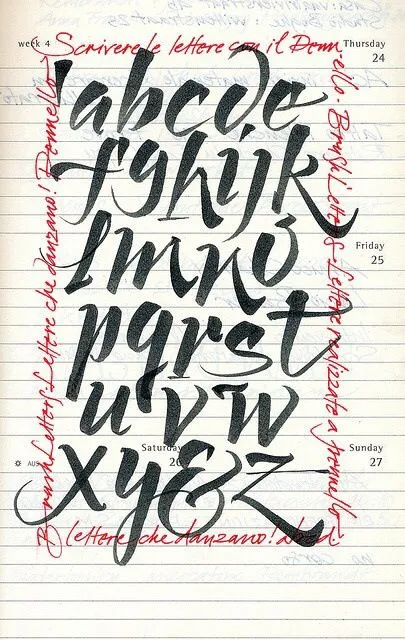 week 4
Thursday
24
Scrivere le lettere con il Pennello. Brush Letters. Lettere realizzate a pennello
Brush Letters. Lettere che danzano! Pennello
abcde
fghijk
lmno
Friday
25
pqrst
uvw
Saturday
26
Sunday
27
xy&z
lettere che danzano!